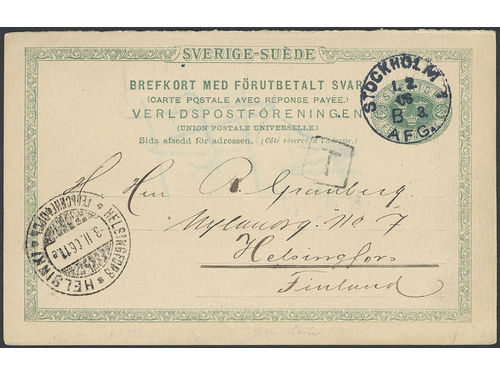 SVERIGE-SUÈDE
BREFKORT MED FÖRUTBETALT SVAR
(CARTE POSTALE AVEC RÉPONSE PAYÉE.)
VERLDSPOSTFÖRENINGEN
(UNION POSTALE UNIVERSELLE.)
Sida afsedd för adressen. (Côté réservé à l'adresse.)
STOCKHOLM 1
1. 2.
06
B 3.
AFG.
T
Herr R. Granberg.
Nylandsg. No 7
Helsingfors
Finland
HELSINGFORS
HELSINKI
3.II.06